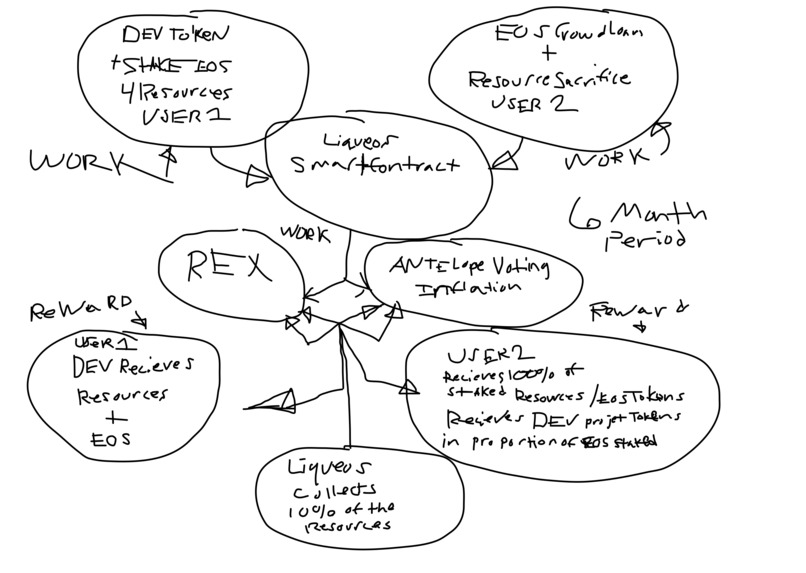 DEV Token
+STAKE EOS
4 Resources
USER 1
EOS Crowdloan
+
Resource Sacrifice
USER 2
Liqueos
Smart Contract
WORK
WORK
6 Month
Period
WORK
REX
ANTELope Voting
Inflation
ReWaRD
Reward
USER 1
DEV Recieves
Resources
+
EOS
USER 2
Recieves 100% of
staked Resources/EOSTokens
Recieves DEV projet Tokens
in proportion of EOS staked
Liqueos
Collects
10% of the
Resources